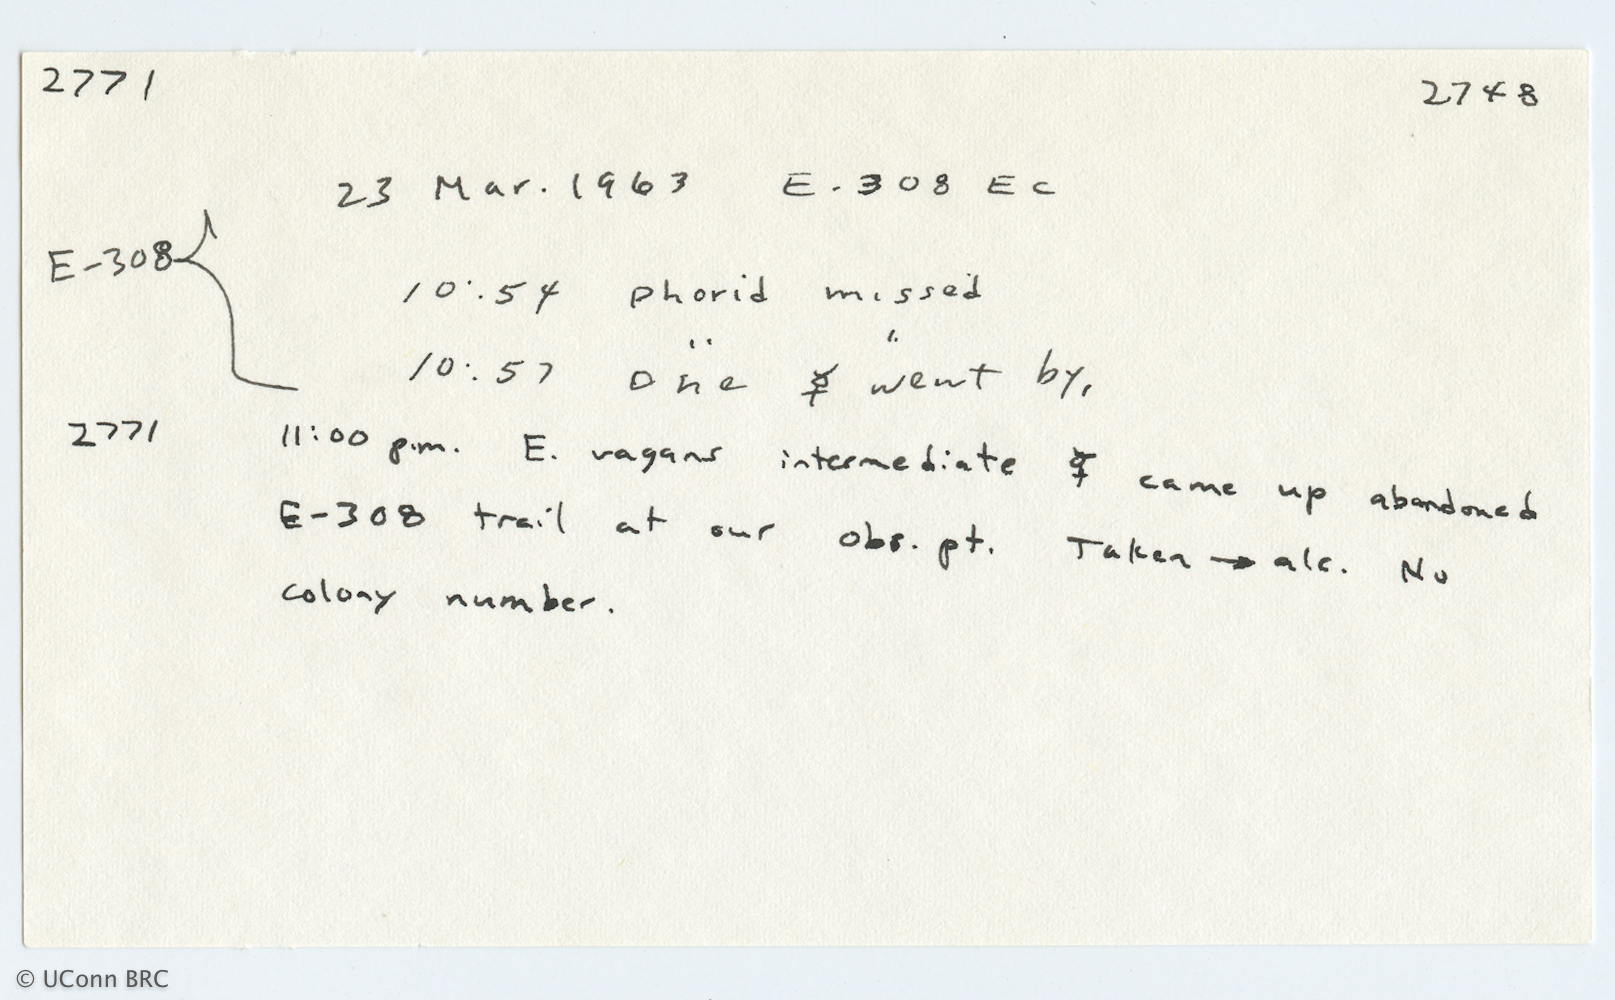 2771 2748
23 Mar. 1963 E-308 Ec
E-308
10:54 phorid missed
" "
10:57 One ☿ went by.
2771 11:00 p.m. E. vagans intermediate ☿ came up abandoned
E-308 trail at our obs. pt. Taken → alc. No
colony number.
© UConn BRC